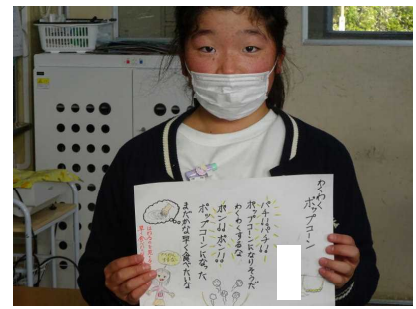 わくわく
ポップコーン
パチパチパチ!!
ポップコーンになりそうだ
わくわくするな
ポン!!ポン!!
ポップコーンになった
まだかな早く食べたいな